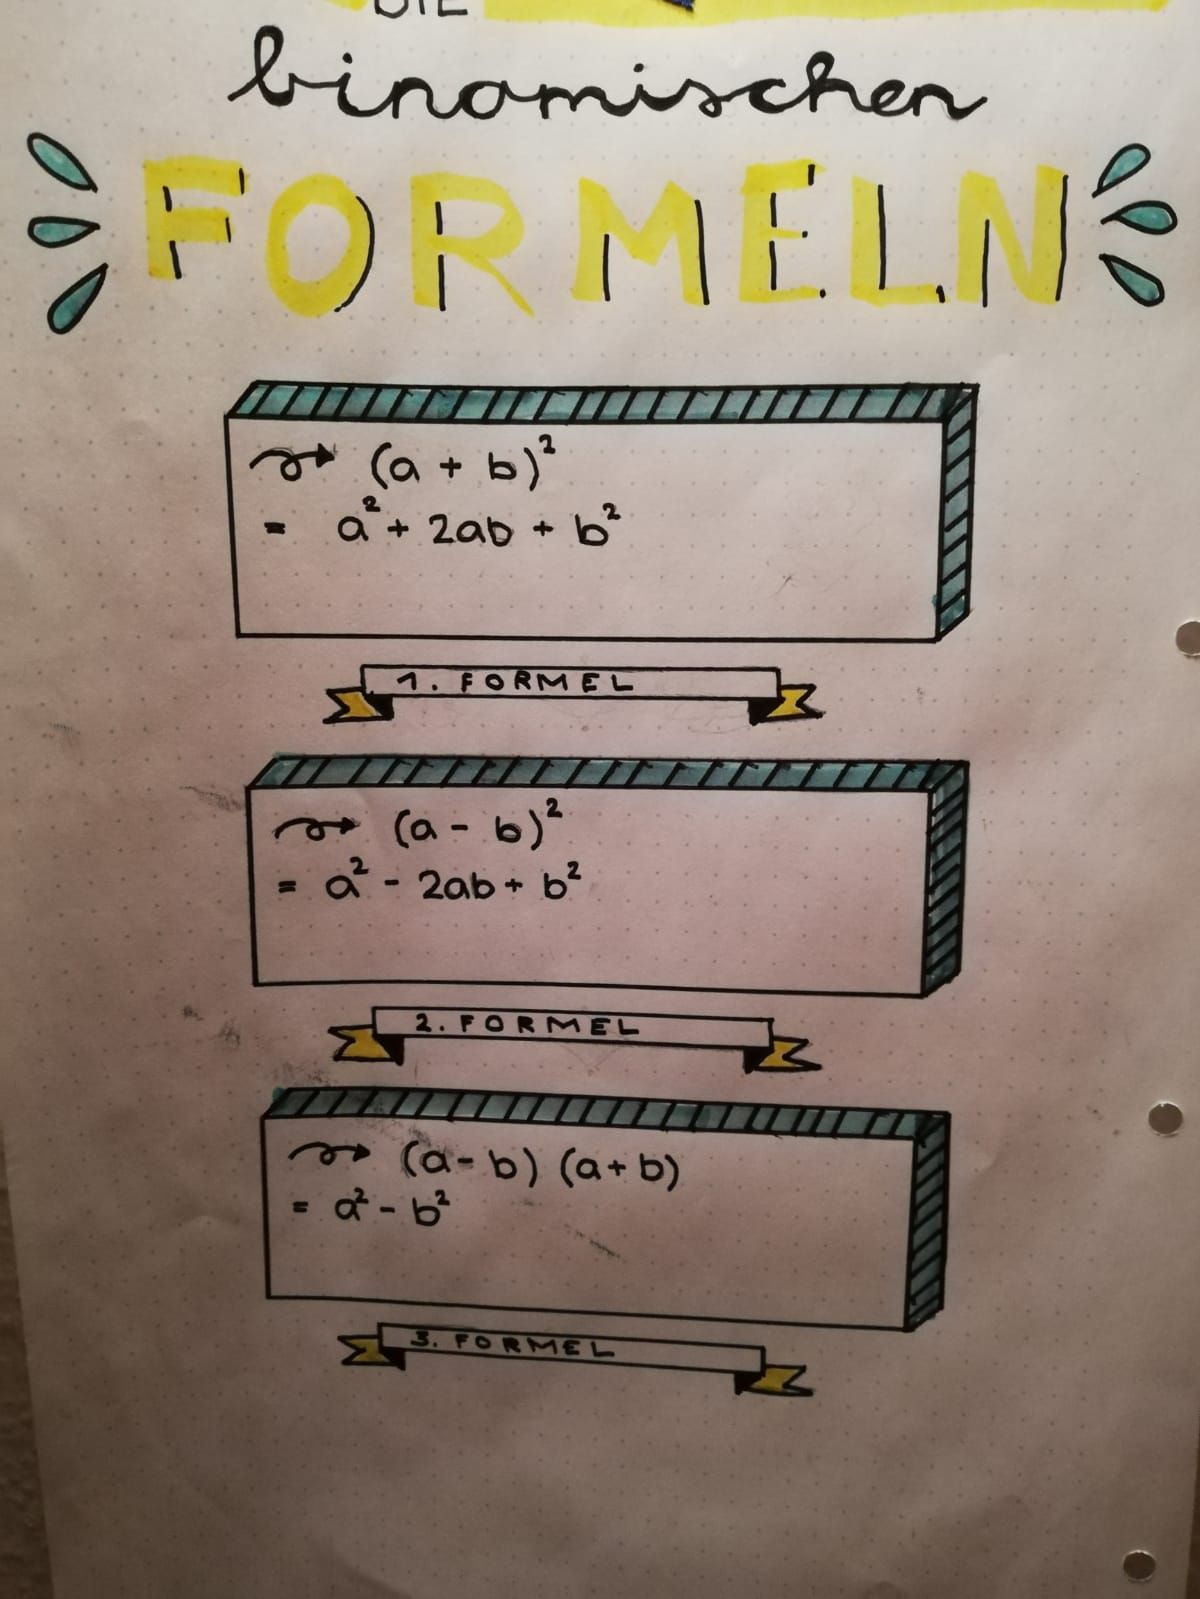 DIE
binomischen
FORMELN
(a + b)²
= a² + 2ab + b²
1. FORMEL
(a - b)²
= a² - 2ab + b²
2. FORMEL
(a - b) (a + b)
= a² - b²
3. FORMEL